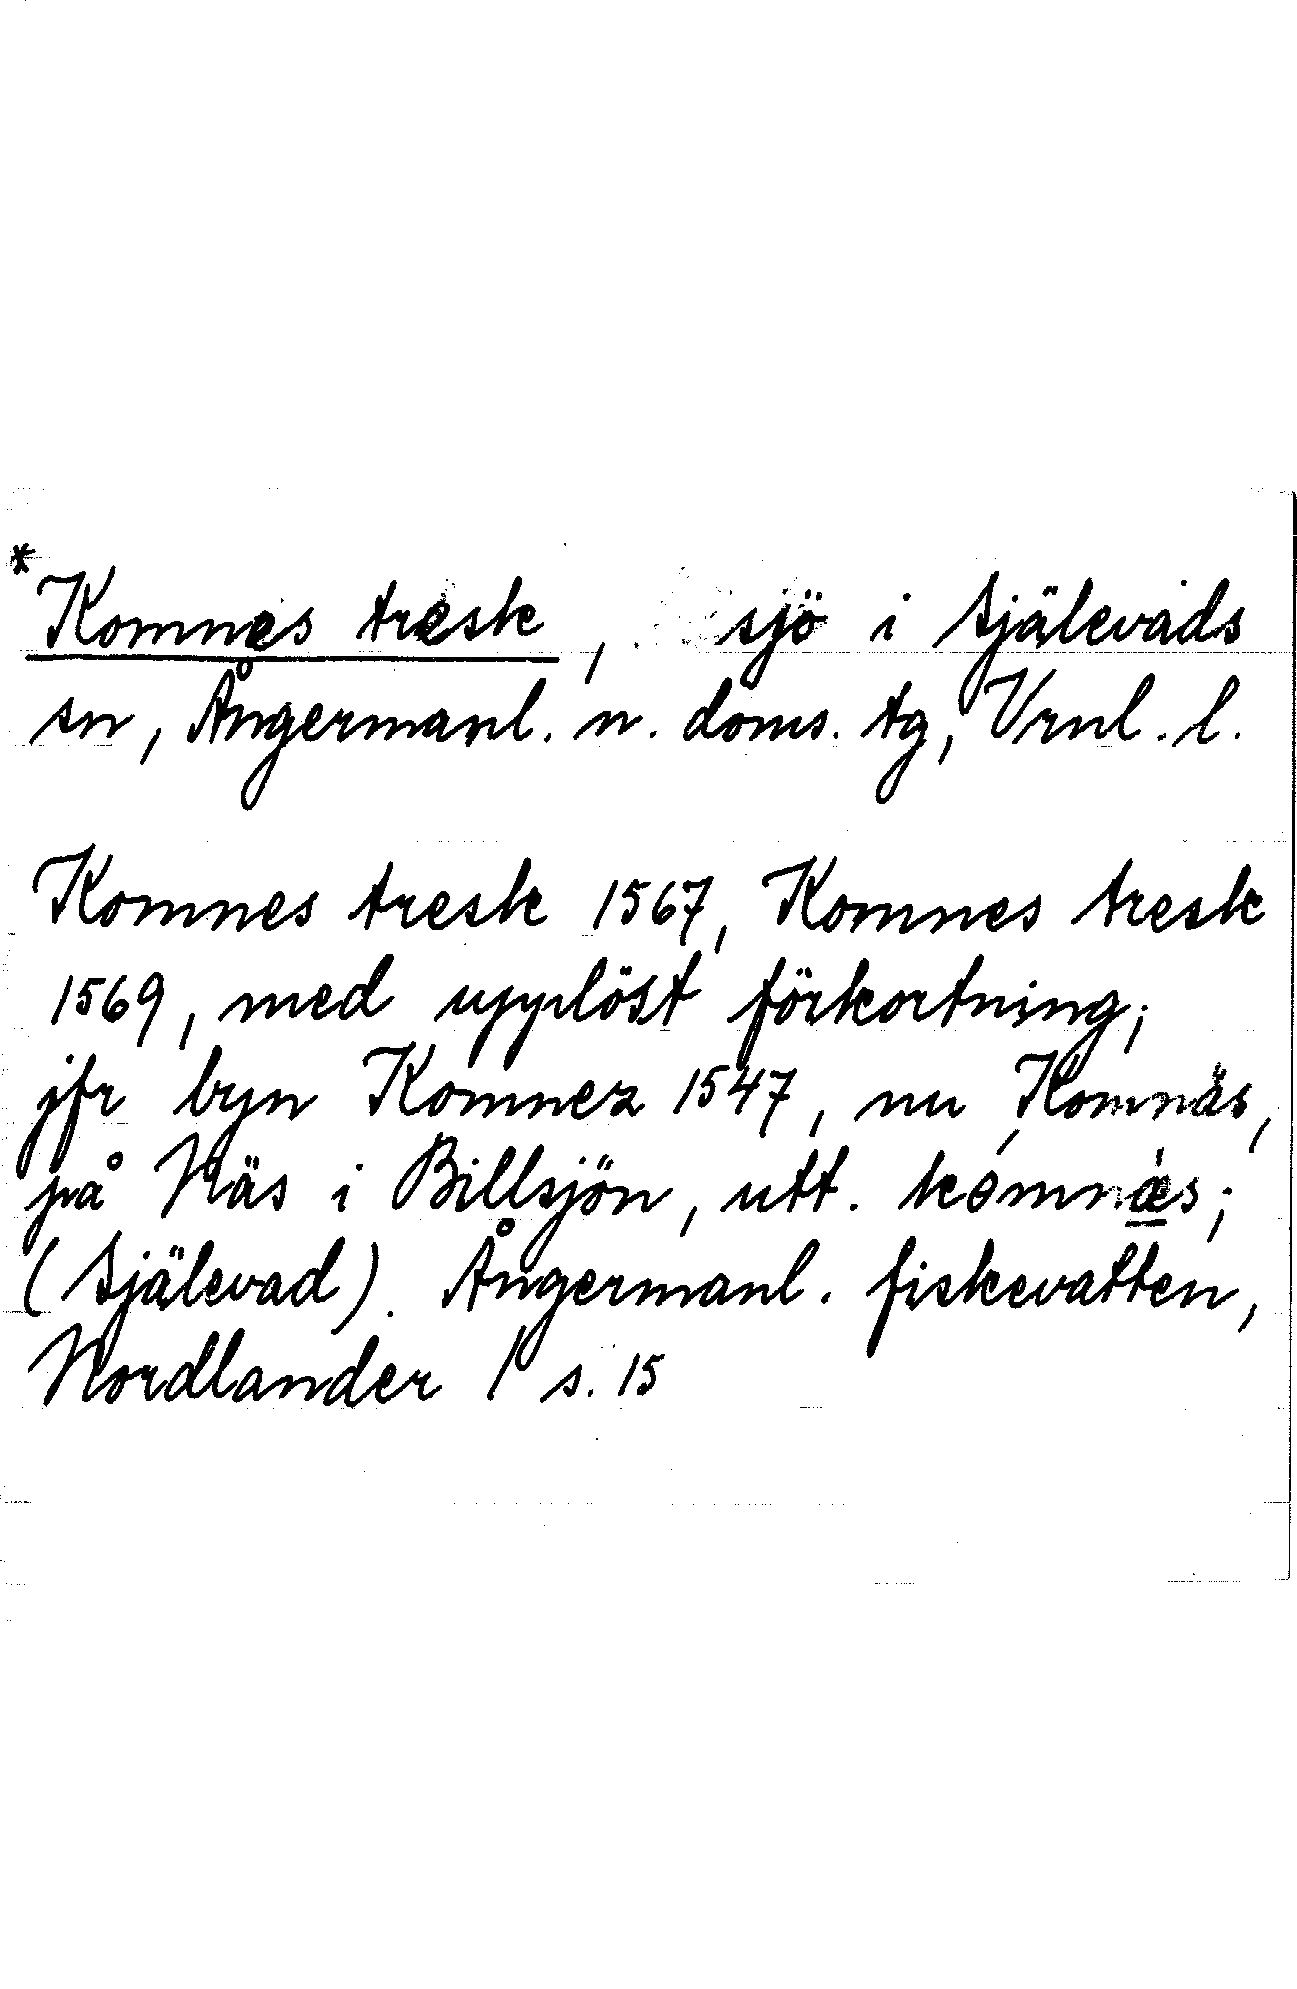 *Komnes tresk, sjö i Själevads
sn, Ångermanl. n. doms. tg, Vrnl. l.
Komnes tresk 1567, Komnes tresk
1569, med upplöst förkortning;
jfr byn Komnez 1547, nu Komnäs,
på Näs i Billsjön, utt. kómnæ̀s;
(Själevad). Ångermanl. fiskevatten,
Nordlander / s. 15